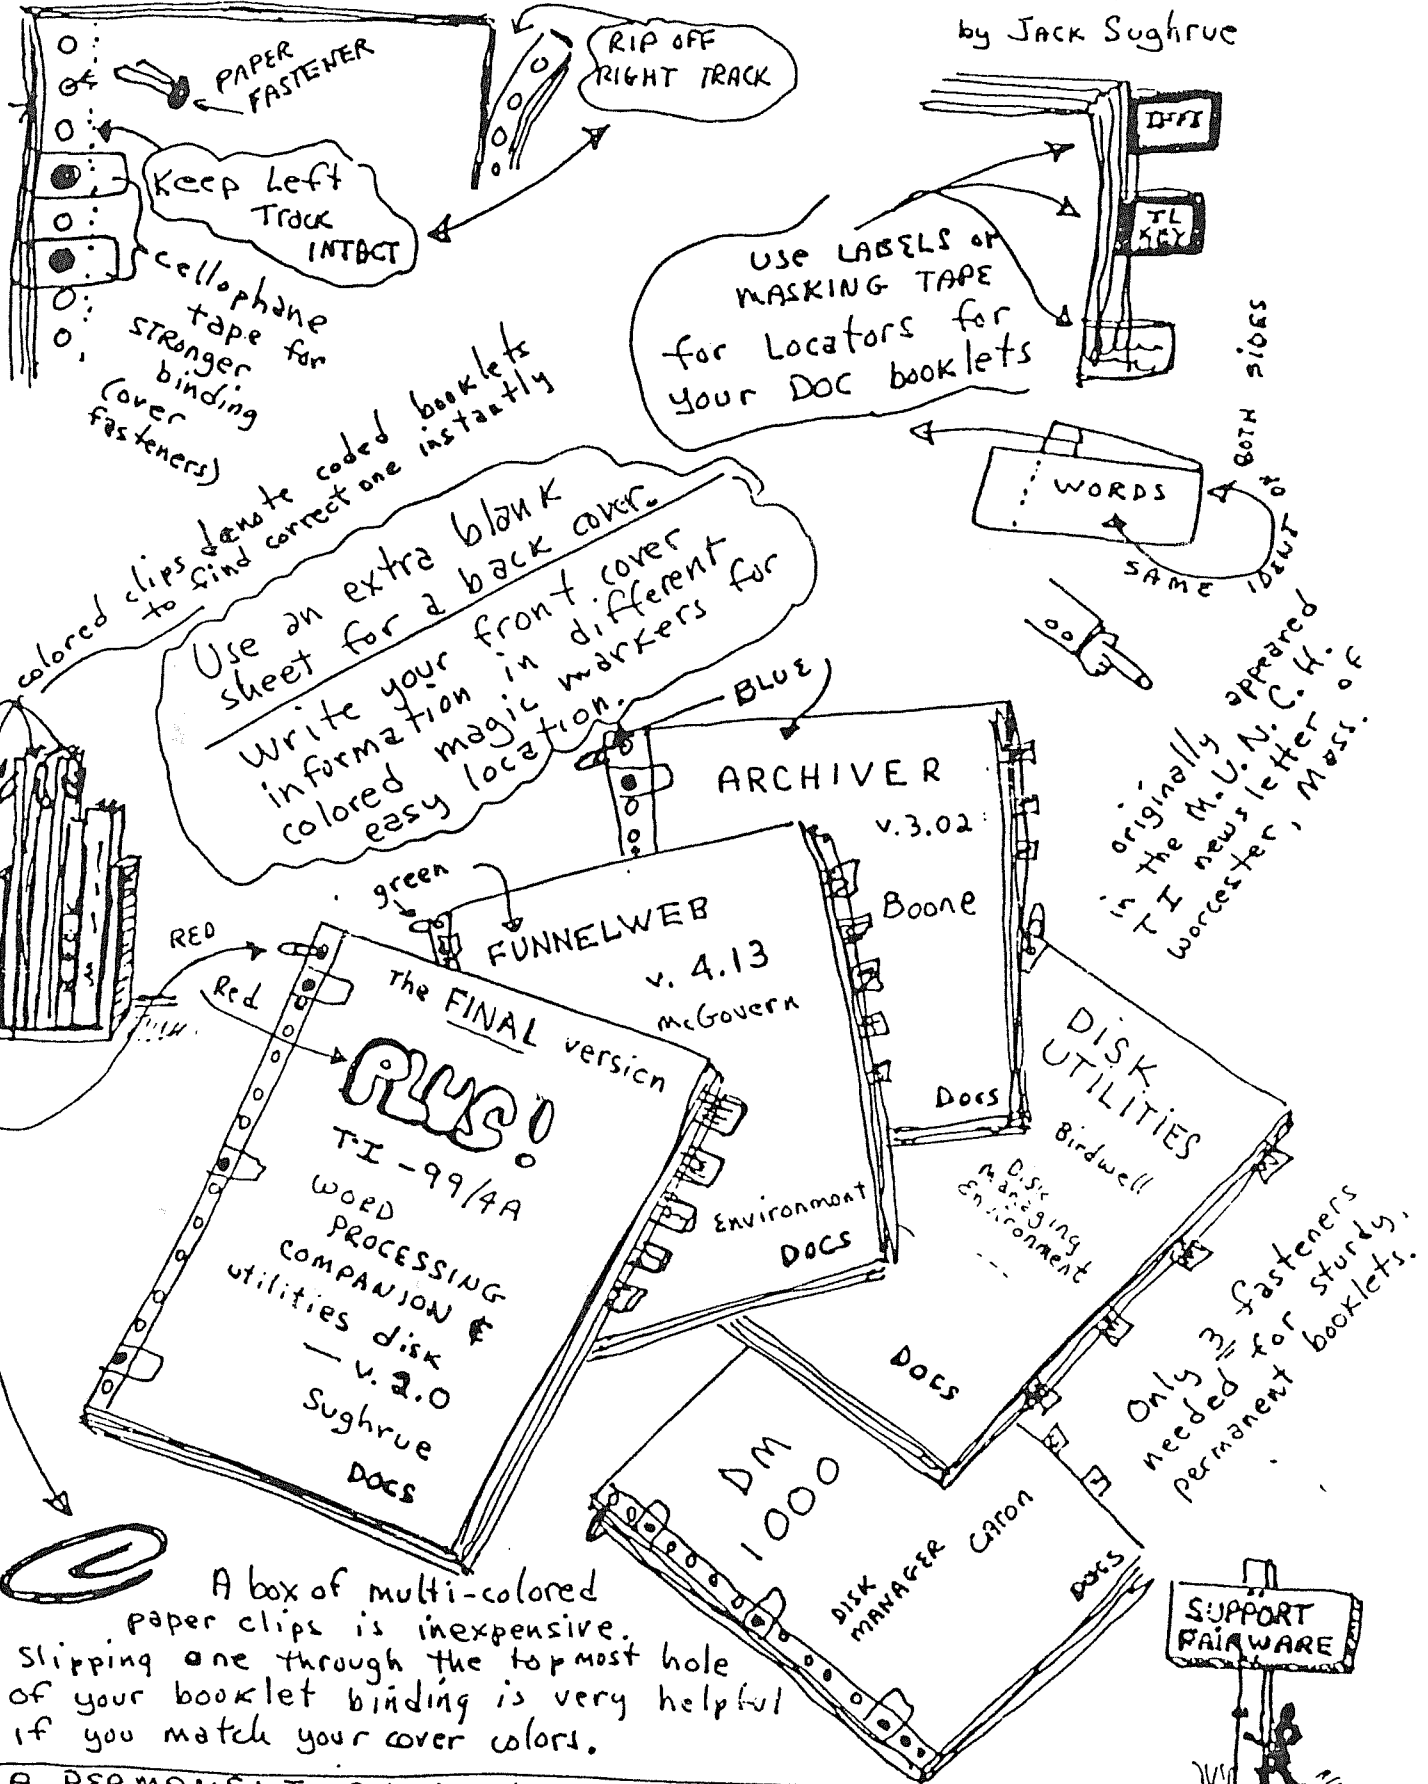 by JACK Sughrue
PAPER
FASTENER
RIP OFF
RIGHT TRACK
Keep Left
Track
INTACT
cellophane
tape for
STRONGER
binding
(over
fasteners)
TI
KEY
USE LABELS or
MASKING TAPE
for Locators for
your DOC booklets
WORDS
SAME IDENT ON BOTH SIDES
colored clips denote coded booklets
to find correct one instantly
Use an extra blank
sheet for a back cover.
Write your front cover
information in different
colored magic markers for
easy location.
originally appeared
in the M.U.N.C.H.
TI newsletter of
Worcester, Mass.
BLUE
ARCHIVER
v.3.02
Boone
DOCS
green
FUNNELWEB
v. 4.13
McGovern
Environment
DOCS
RED
Red
The FINAL version
PLUS!
TI-99/4A
WORD
PROCESSING
COMPANION &
utilities disk
— v. 2.0
Sughrue
DOCS
DISK
UTILITIES
Birdwell
Disk
Managing
Environment
DOCS
Only 3 fasteners
needed for sturdy,
permanent booklets.
DM
1000
DISK
MANAGER
Caron
DOCS
A box of multi-colored
paper clips is inexpensive.
Slipping one through the topmost hole
of your booklet binding is very helpful
if you match your cover colors.
SUPPORT
FAIRWARE